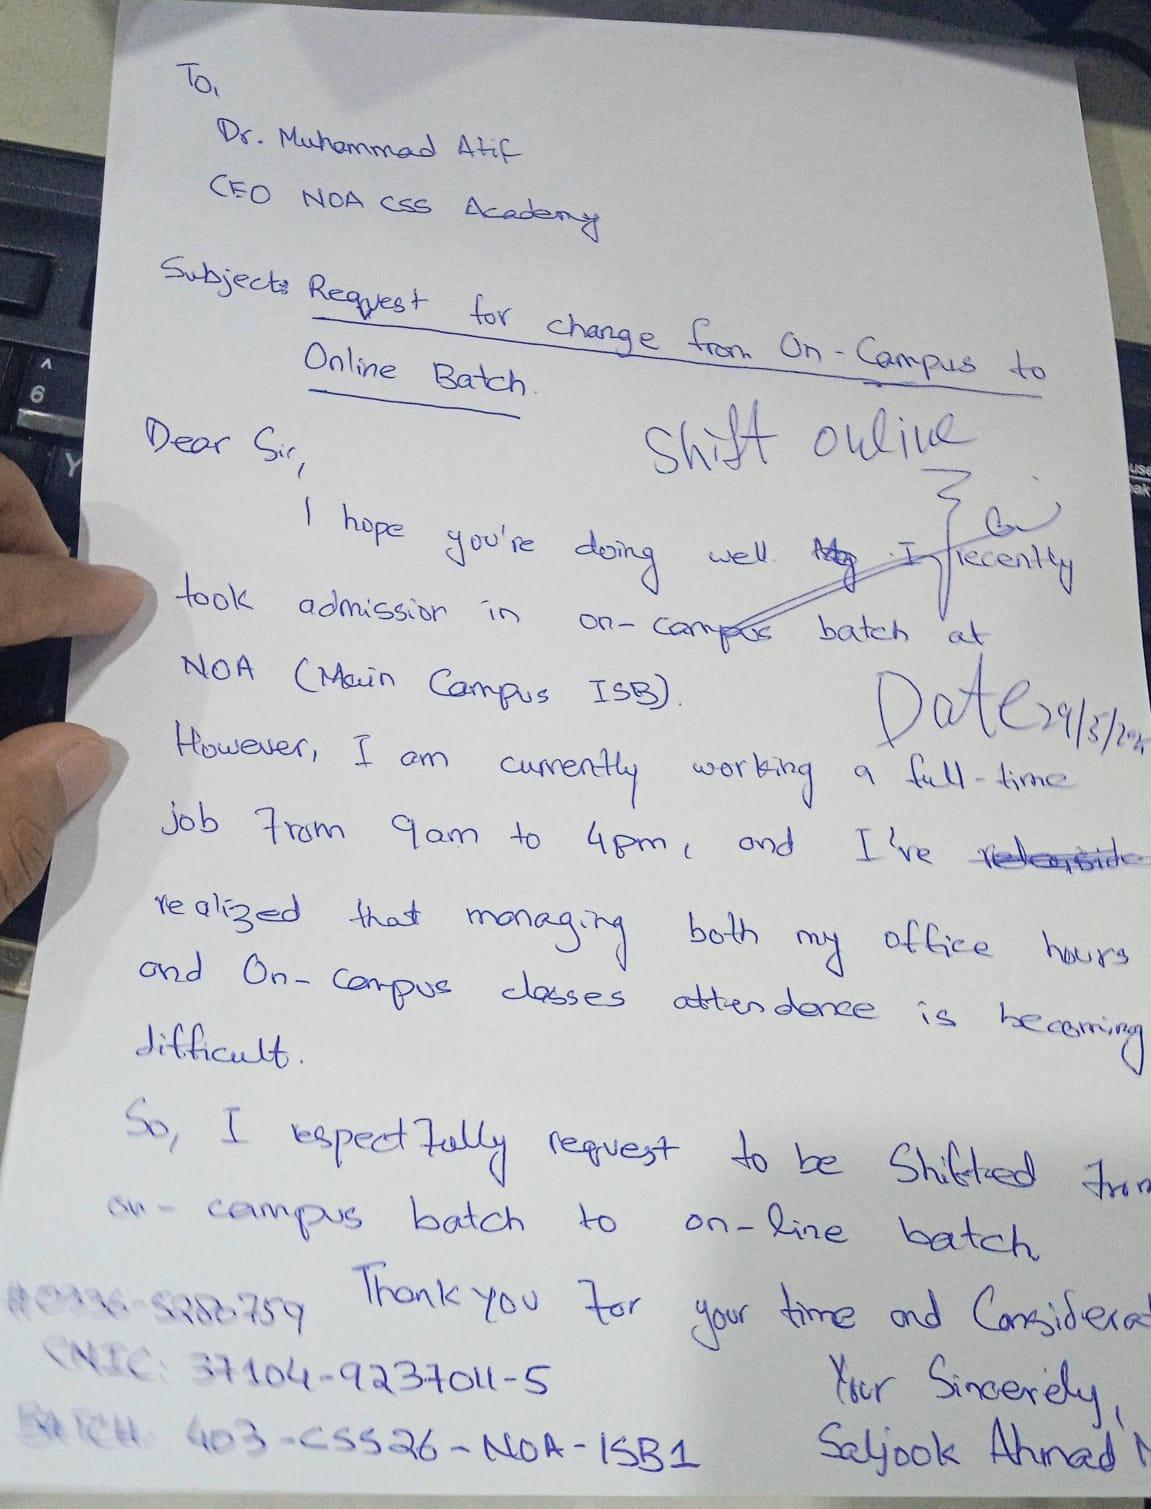 To,
Dr. Muhammad Atif
CEO NOA CSS Academy
Subject: Request for change from On-Campus to
Online Batch.
Shift online
Dear Sir,
I hope you're doing well. I recently
took admission in on-campus batch at
NOA (Main Campus ISB).
Date 29/5/
However, I am currently working a full-time
job from 9am to 4pm, and I've
realized that managing both my office hours
and On-Campus classes attendence is becoming
difficult.
So, I espectfully request to be Shifted from
on-campus batch to on-line batch
Thank you for your time and Considerat
CNIC: 37104-9237011-5
Your Sincerely,
BATCH 403-CSS26-NOA-ISB1
Saljook Ahmad